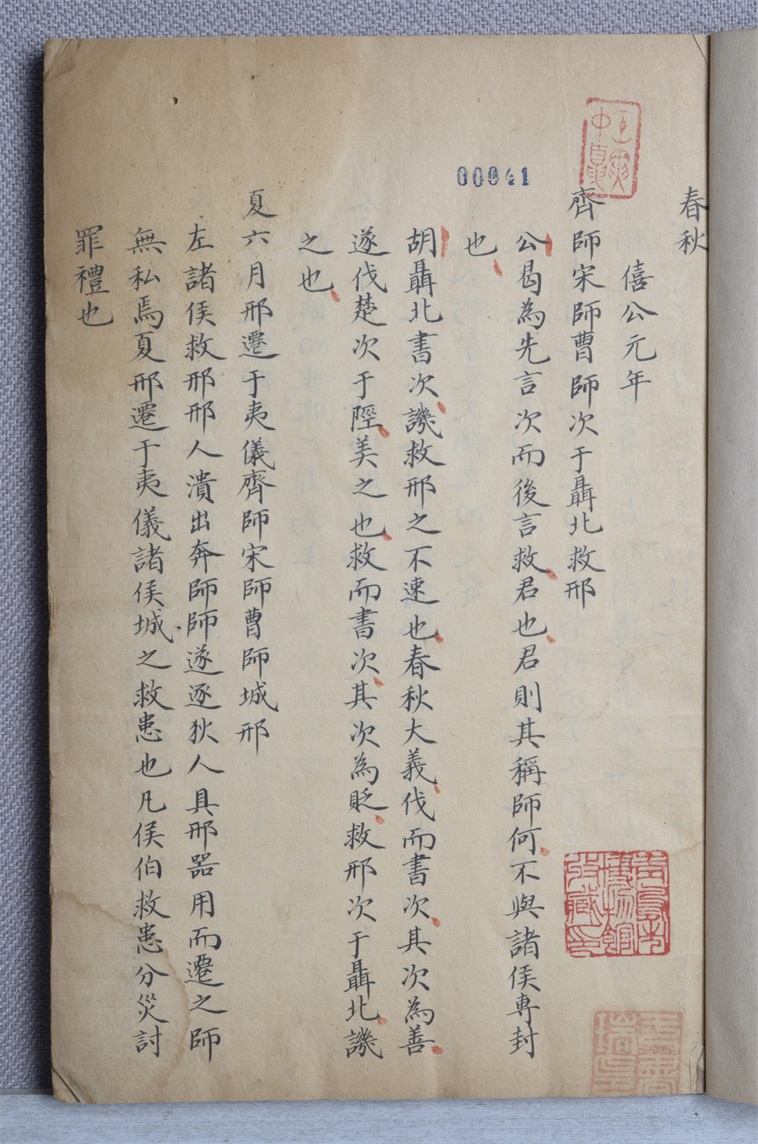 春秋
僖公元年
齊師宋師曹師次于聶北救邢
公曷為先言次而後言救君也君則其稱師何不與諸侯專封
也
胡聶北書次譏救邢之不速也春秋大義伐而書次其次為善
遂伐楚次于陘美之也救而書次其次為貶救邢次于聶北譏
之也
夏六月邢遷于夷儀齊師宋師曹師城邢
左諸侯救邢邢人潰出奔師師遂逐狄人具邢器用而遷之師
無私焉夏邢遷于夷儀諸侯城之救患也凡侯伯救患分災討
罪禮也
00041